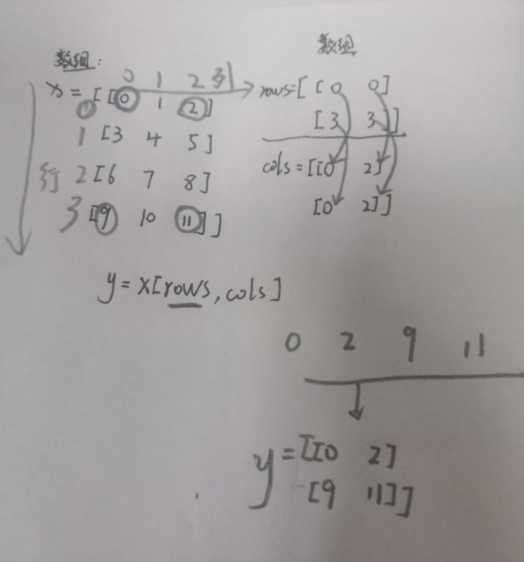 数组：
数组
0 1 2 列
x = [[0 1 2]
0
1 [3 4 5]
行 2 [6 7 8]
3 [9 10 11]]
rows=[[0 0]
[3 3]]
cols=[[0 2]
[0 2]]
y=x[rows,cols]
0 2 9 11
y=[[0 2]
[9 11]]